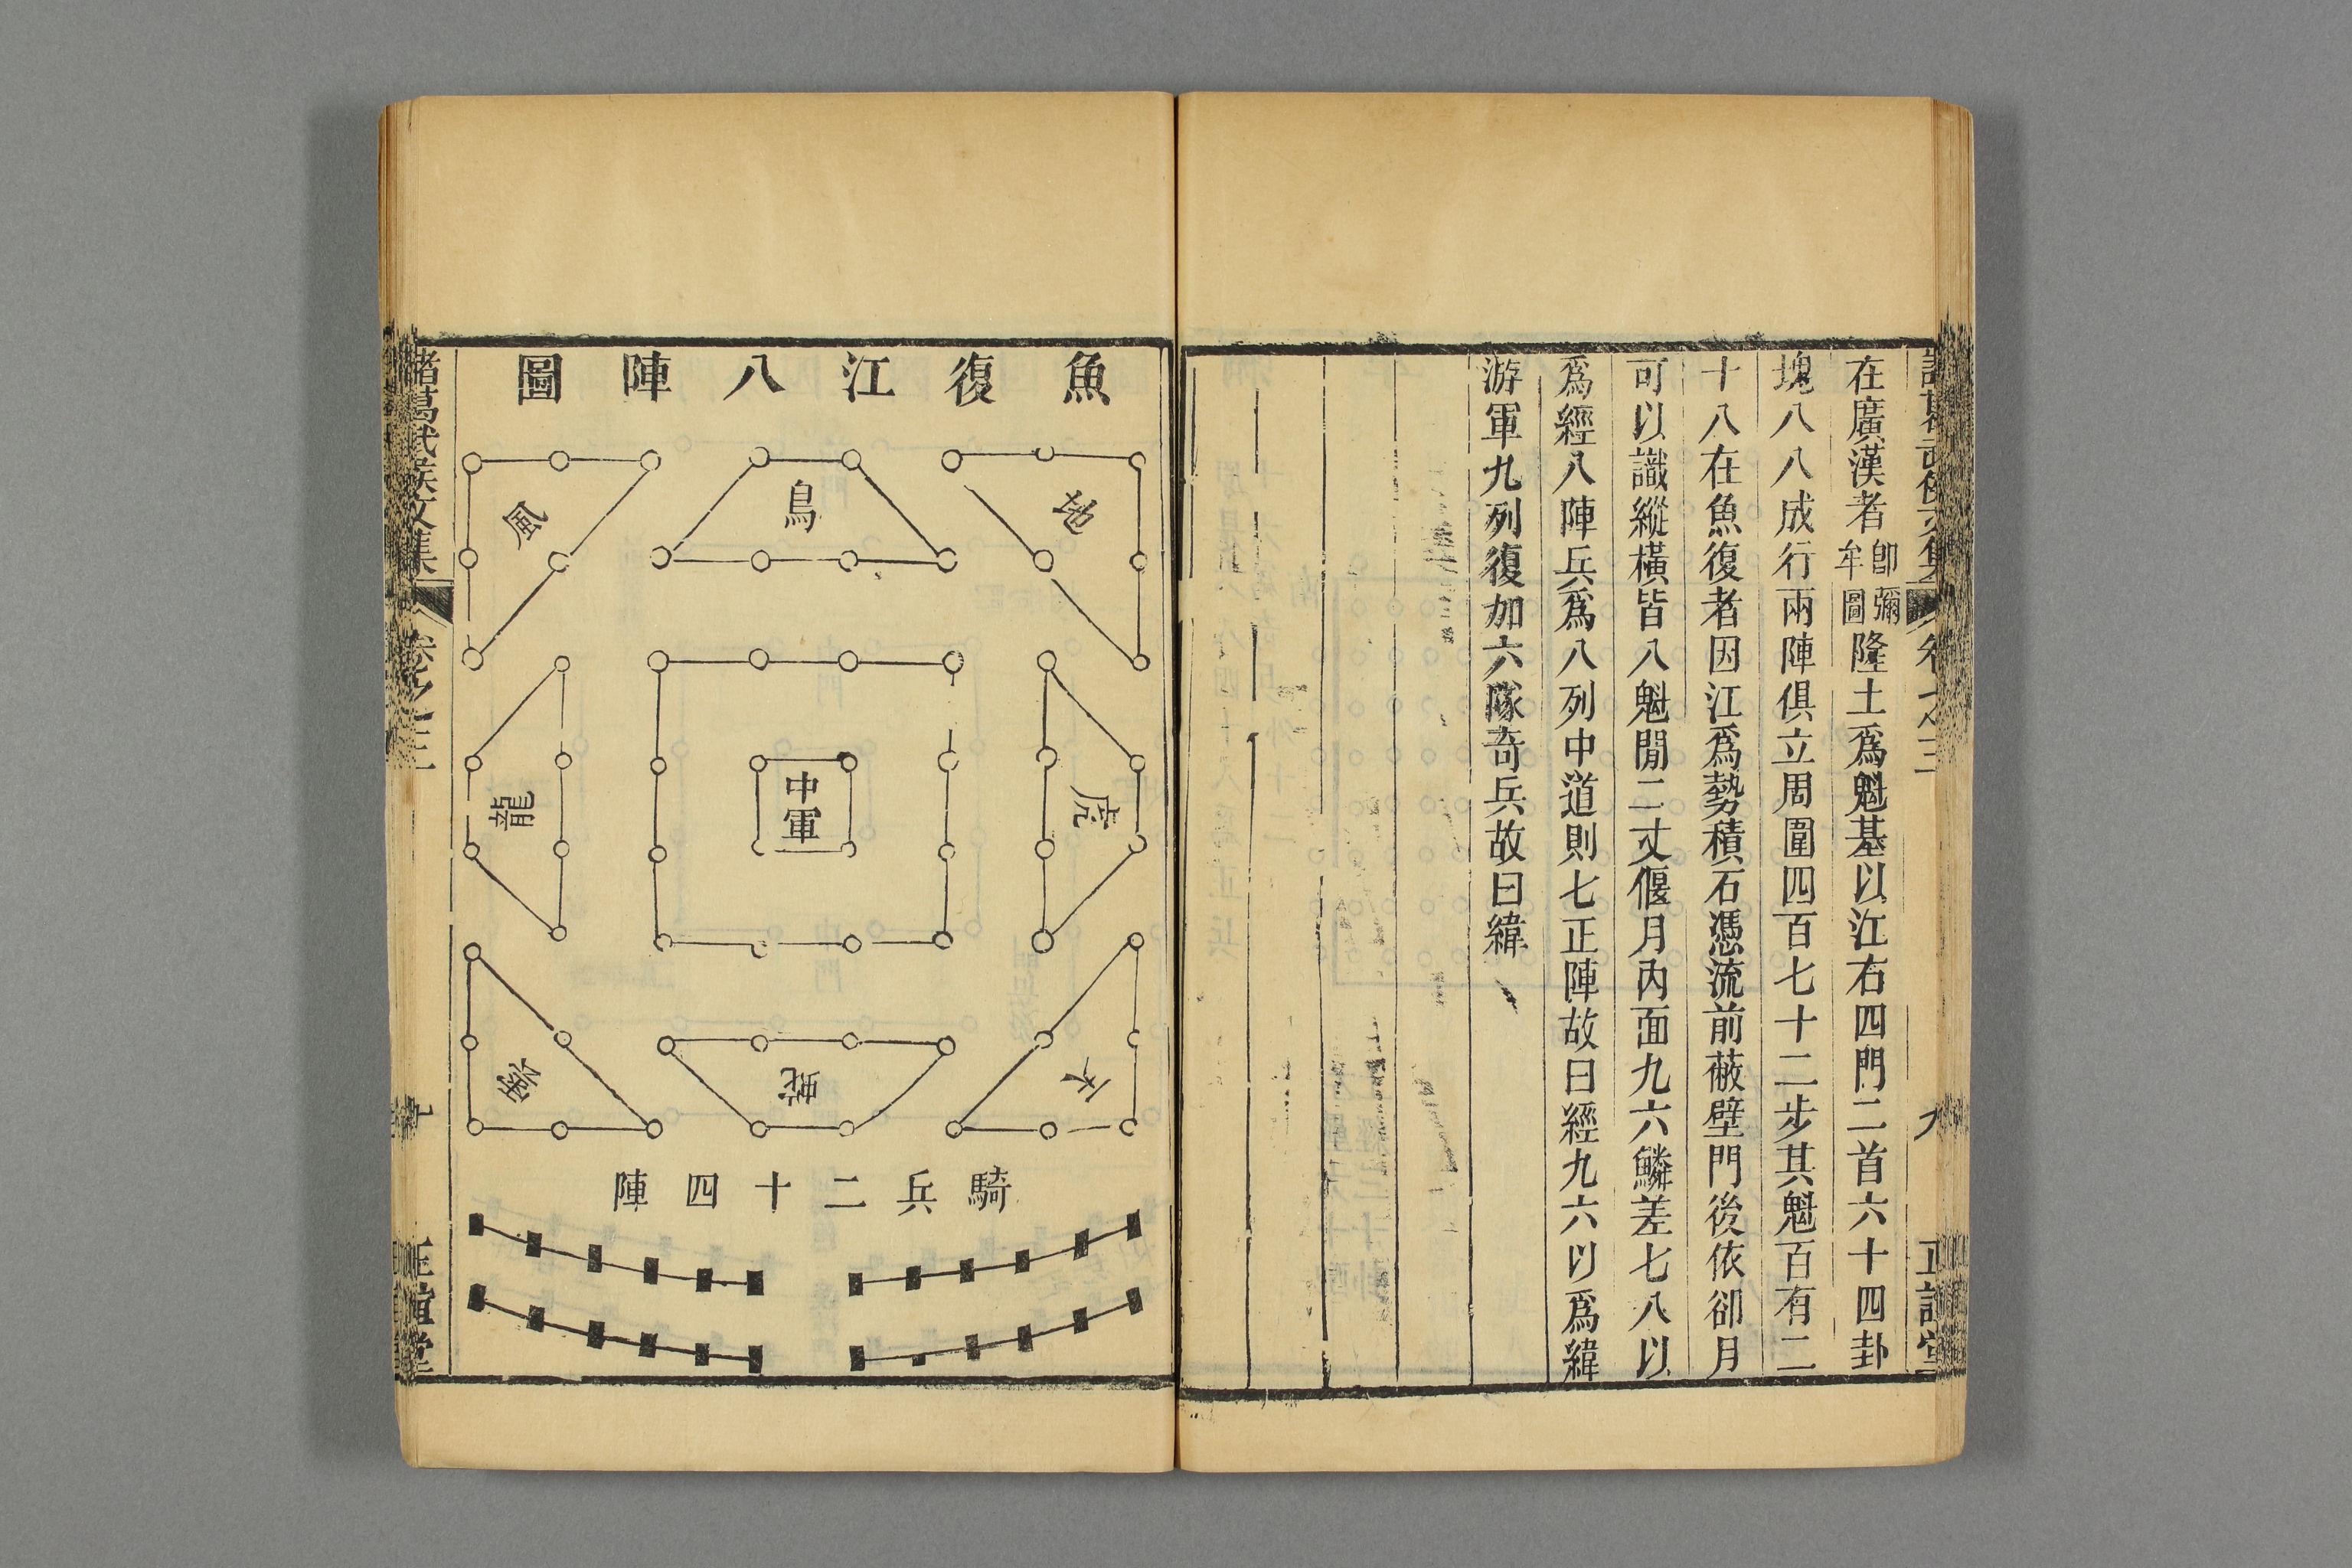 諸葛武侯文集 卷之三 九 正誼堂
在廣漢者卽彌牟圖隆土爲魁基以江右四門二首六十四卦
塊八八成行兩陣俱立周圍四百七十二步其魁百有二
十八在魚復者因江爲勢積石憑流前蔽壁門後依卻月
可以識縱橫皆八魁閒二丈偃月內面九六鱗差七八以
爲經八陣兵爲八列中道則七正陣故曰經九六以爲緯
游軍九列復加六隊奇兵故曰緯
魚復江八陣圖
地
鳥
風
虎
中軍
龍
天
蛇
雲
騎兵二十四陣
諸葛武侯文集 卷之三 十 正誼堂